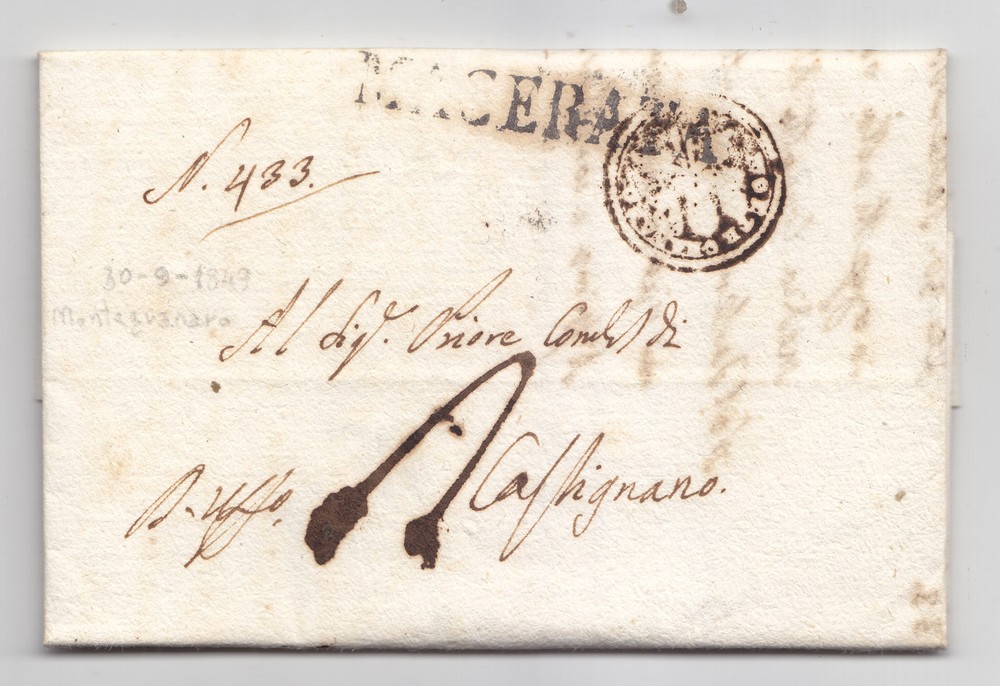 MACERATA
N. 433.
30-9-1849
Montegranaro
Al Sigr. Priore Comle di
Castignano.